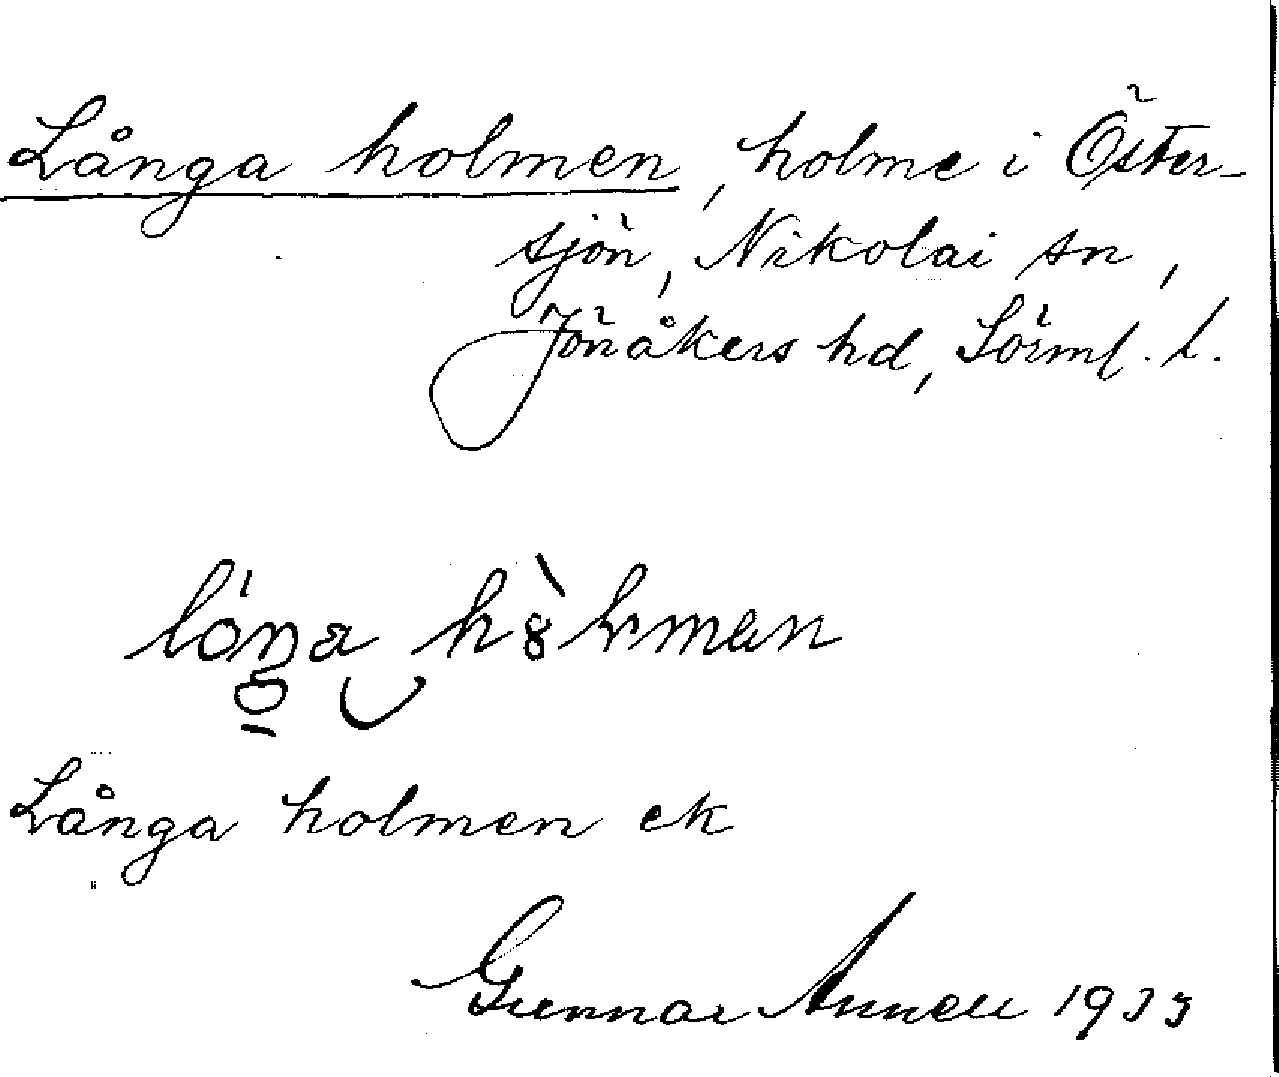 Långa holmen, holme i Öster-
sjön, Nikolai sn,
Jönåkers hd, Sörml. l.
Långa holmen ek
Gunnar Annell 1933